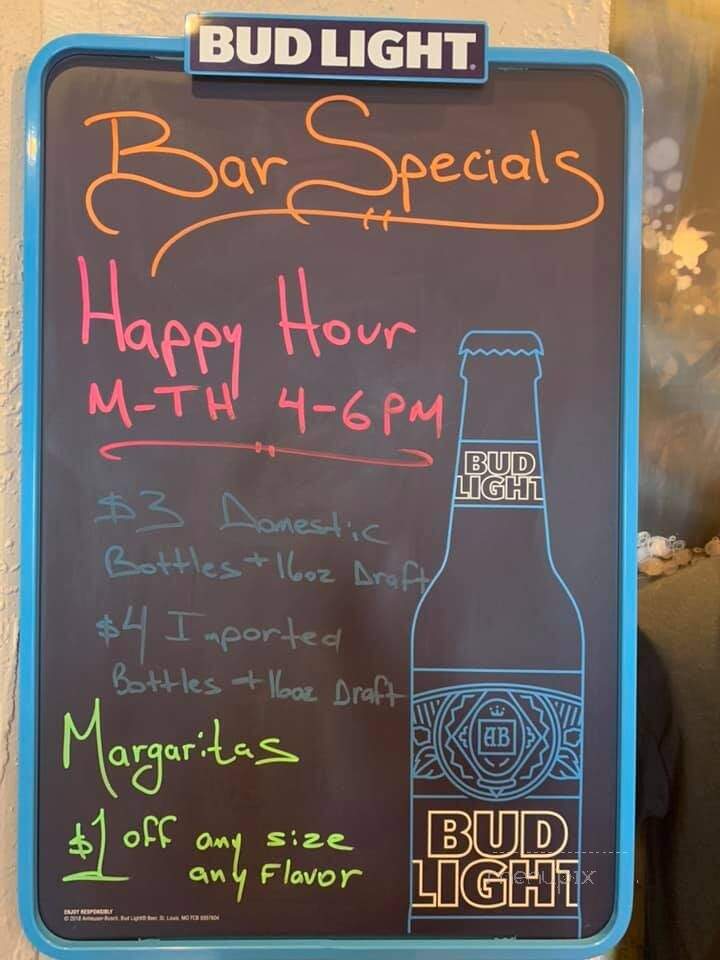 BUD LIGHT
Bar Specials
Happy Hour
M-TH 4-6PM
BUD
LIGHT
$3 Domestic
Bottles + 16oz Draft
$4 Imported
Bottles + 16oz Draft
AB
Margaritas
$1 off any size
any Flavor
BUD
LIGHT
menupix
ENJOY RESPONSIBLY
© 2018 Anheuser-Busch, Bud Light® Beer, St. Louis, MO